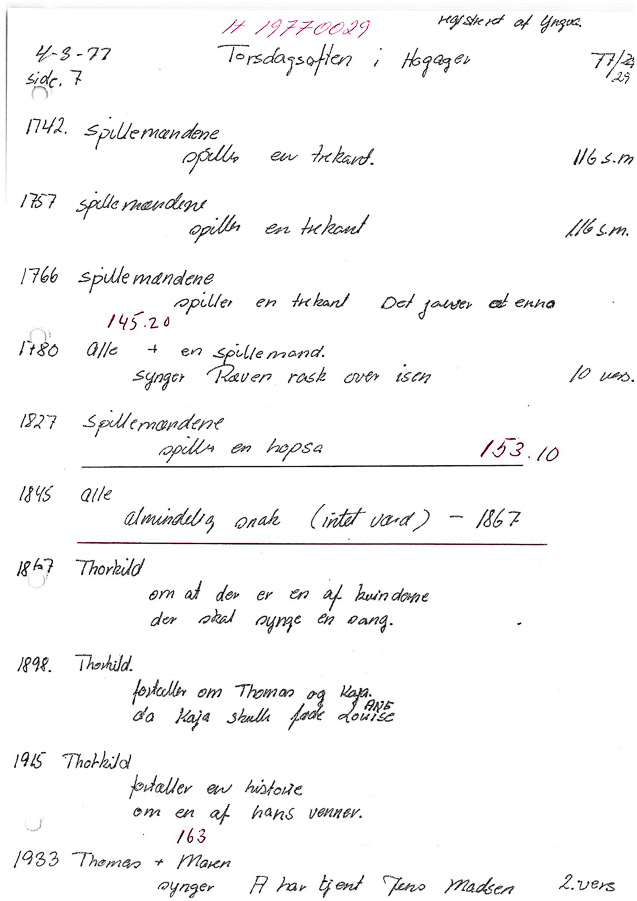 H 19770029 registreret af Yngva.
4-3-77 Torsdagsaften i Hogager 77/29
side. 7 29
1742. spillemændene
spiller en trekant. 116 s.m
1757 spillemændene
spiller en trekant 116 s.m.
1766 spillemændene
spiller en trekant Det enno
145.20
1780 alle + en spillemand.
synger Ræven rask over isen 10 vers.
1827 spillemændene
spiller en hopsa 153.10
1845 alle
almindelig snak (intet værd) – 1867
1867 Thorkild
om at der er en af kvinderne
der skal synge en sang.
1898. Thorkild.
fortæller om Thomas og Kaja.
ANE
da Kaja skulle føde Louise
1915 Thorkild
fortæller en historie
om en af hans venner.
163
1933 Thomas + Maren
synger A har tjent Jens Madsen 2.vers